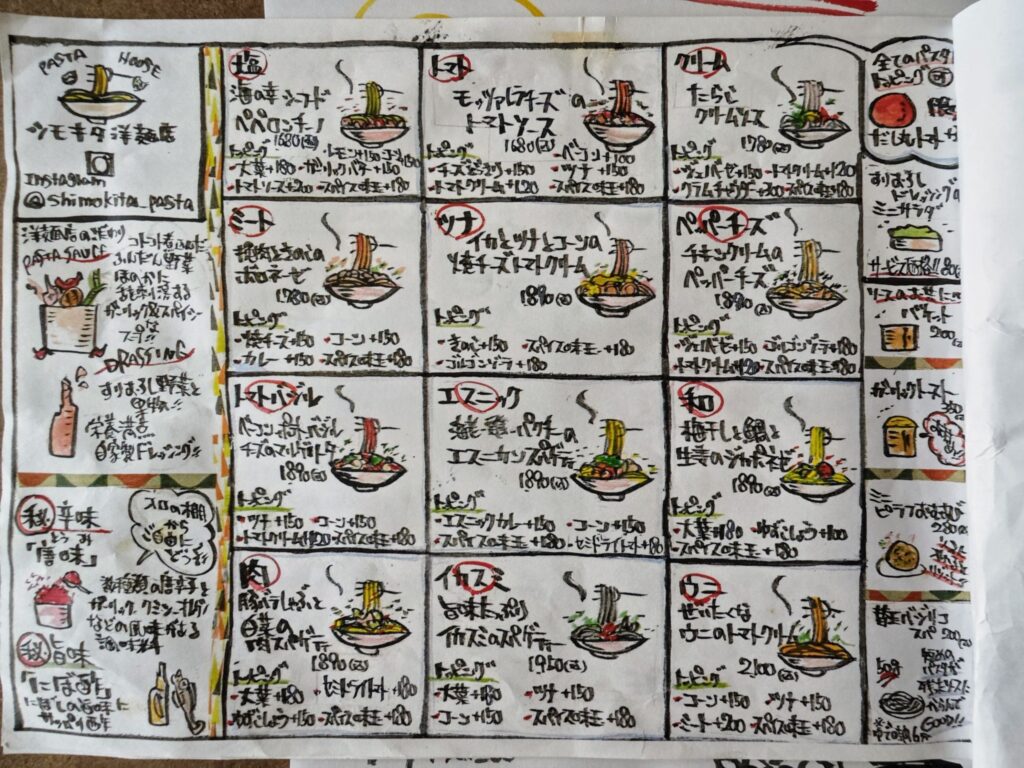 PASTA HOUSE
シモキタ洋麺店
Instagram
@shimokita_pasta
洋麺店のこだわり
PASTA SAUCE
ほのかに
ガーリック&スパイシー
な
スープ!!
DRESSING
すりおろし野菜と
果物!!
栄養満点
自家製ドレッシング!!
㊙辛味
「唐味」
とうみ
ガーリック、クミン、オレガノ
などの風味がある
調味料
フロの棚
から
ご自由に
どうぞ!!
㊙旨味
「にぼ酢」
にぼしの旨味に
サッパリ酢
塩
海の幸シーフード
ペペロンチーノ
1680(込)
トッピング
・レモン+150
・大葉+180 ・ガーリックバター+150
・トマトソース+200 ・スパイスの味玉+180
トマト
モッツァレラチーズの
トマトソース
1680(込)
トッピング
・ベーコン+100
・チーズどっさり+150 ・ツナ+150
・トマトクリーム+120 ・スパイスの味玉+180
クリーム
たらこ
クリームソース
1780(込)
トッピング
・ジェノベーゼ+150 ・トマトクリーム+120
・クラムチャウダー+200 ・スパイスの味玉+180
ミート
挽肉ときのこの
ボロネーゼ
1780(込)
トッピング
・焼チーズ+150 ・コーン+150
・カレー+150 ・スパイスの味玉+180
ツナ
イカとツナとコーンの
焼チーズトマトクリーム
1890(込)
トッピング
・きのこ+150 ・スパイスの味玉+180
・ゴルゴンゾーラ+180
ペッパーチーズ
チキンクリームの
ペッパーチーズ
1890(込)
トッピング
・ジェノベーゼ+150 ・ゴルゴンゾーラ+180
・トマトクリーム+120 ・スパイスの味玉+180
トマトバジル
ベーコン・ポテト・バジル
チーズのマルゲリータ
1890(込)
トッピング
・ツナ+150 ・コーン+150
・トマトクリーム+120 ・スパイスの味玉+180
エスニック
パクチーの
エスニカンスパゲティ
1890(込)
トッピング
・エスニックカレー+150 ・コーン+150
・スパイスの味玉+180 ・セミドライトマト+180
和
梅干しと鯛と
生姜のジャポネーゼ
1890(込)
トッピング
・大葉+180 ・ゆずこしょう+100
・スパイスの味玉+180
肉
豚バラしゃぶと
白菜の
肉スパゲティ
1890(込)
トッピング
・大葉+180 ・セミドライトマト+180
・ゆずこしょう+150 ・スパイスの味玉+180
イカスミ
旨味たっぷり
イカスミのスパゲティー
1950(込)
トッピング
・大葉+180 ・ツナ+150
・コーン+150 ・スパイスの味玉+180
ウニ
ぜいたくな
ウニのトマトクリーム
2,100(込)
トッピング
・コーン+150 ・ツナ+150
・ミート+200 ・スパイスの味玉+180
全てのパスタ
トッピング可
すりおろし
ドレッシングの
ミニサラダ
サービス価格!!
ソースのお供に!!
バケット
200
ガーリックトースト
350
ミニ
ピラフおむすび
280(込)